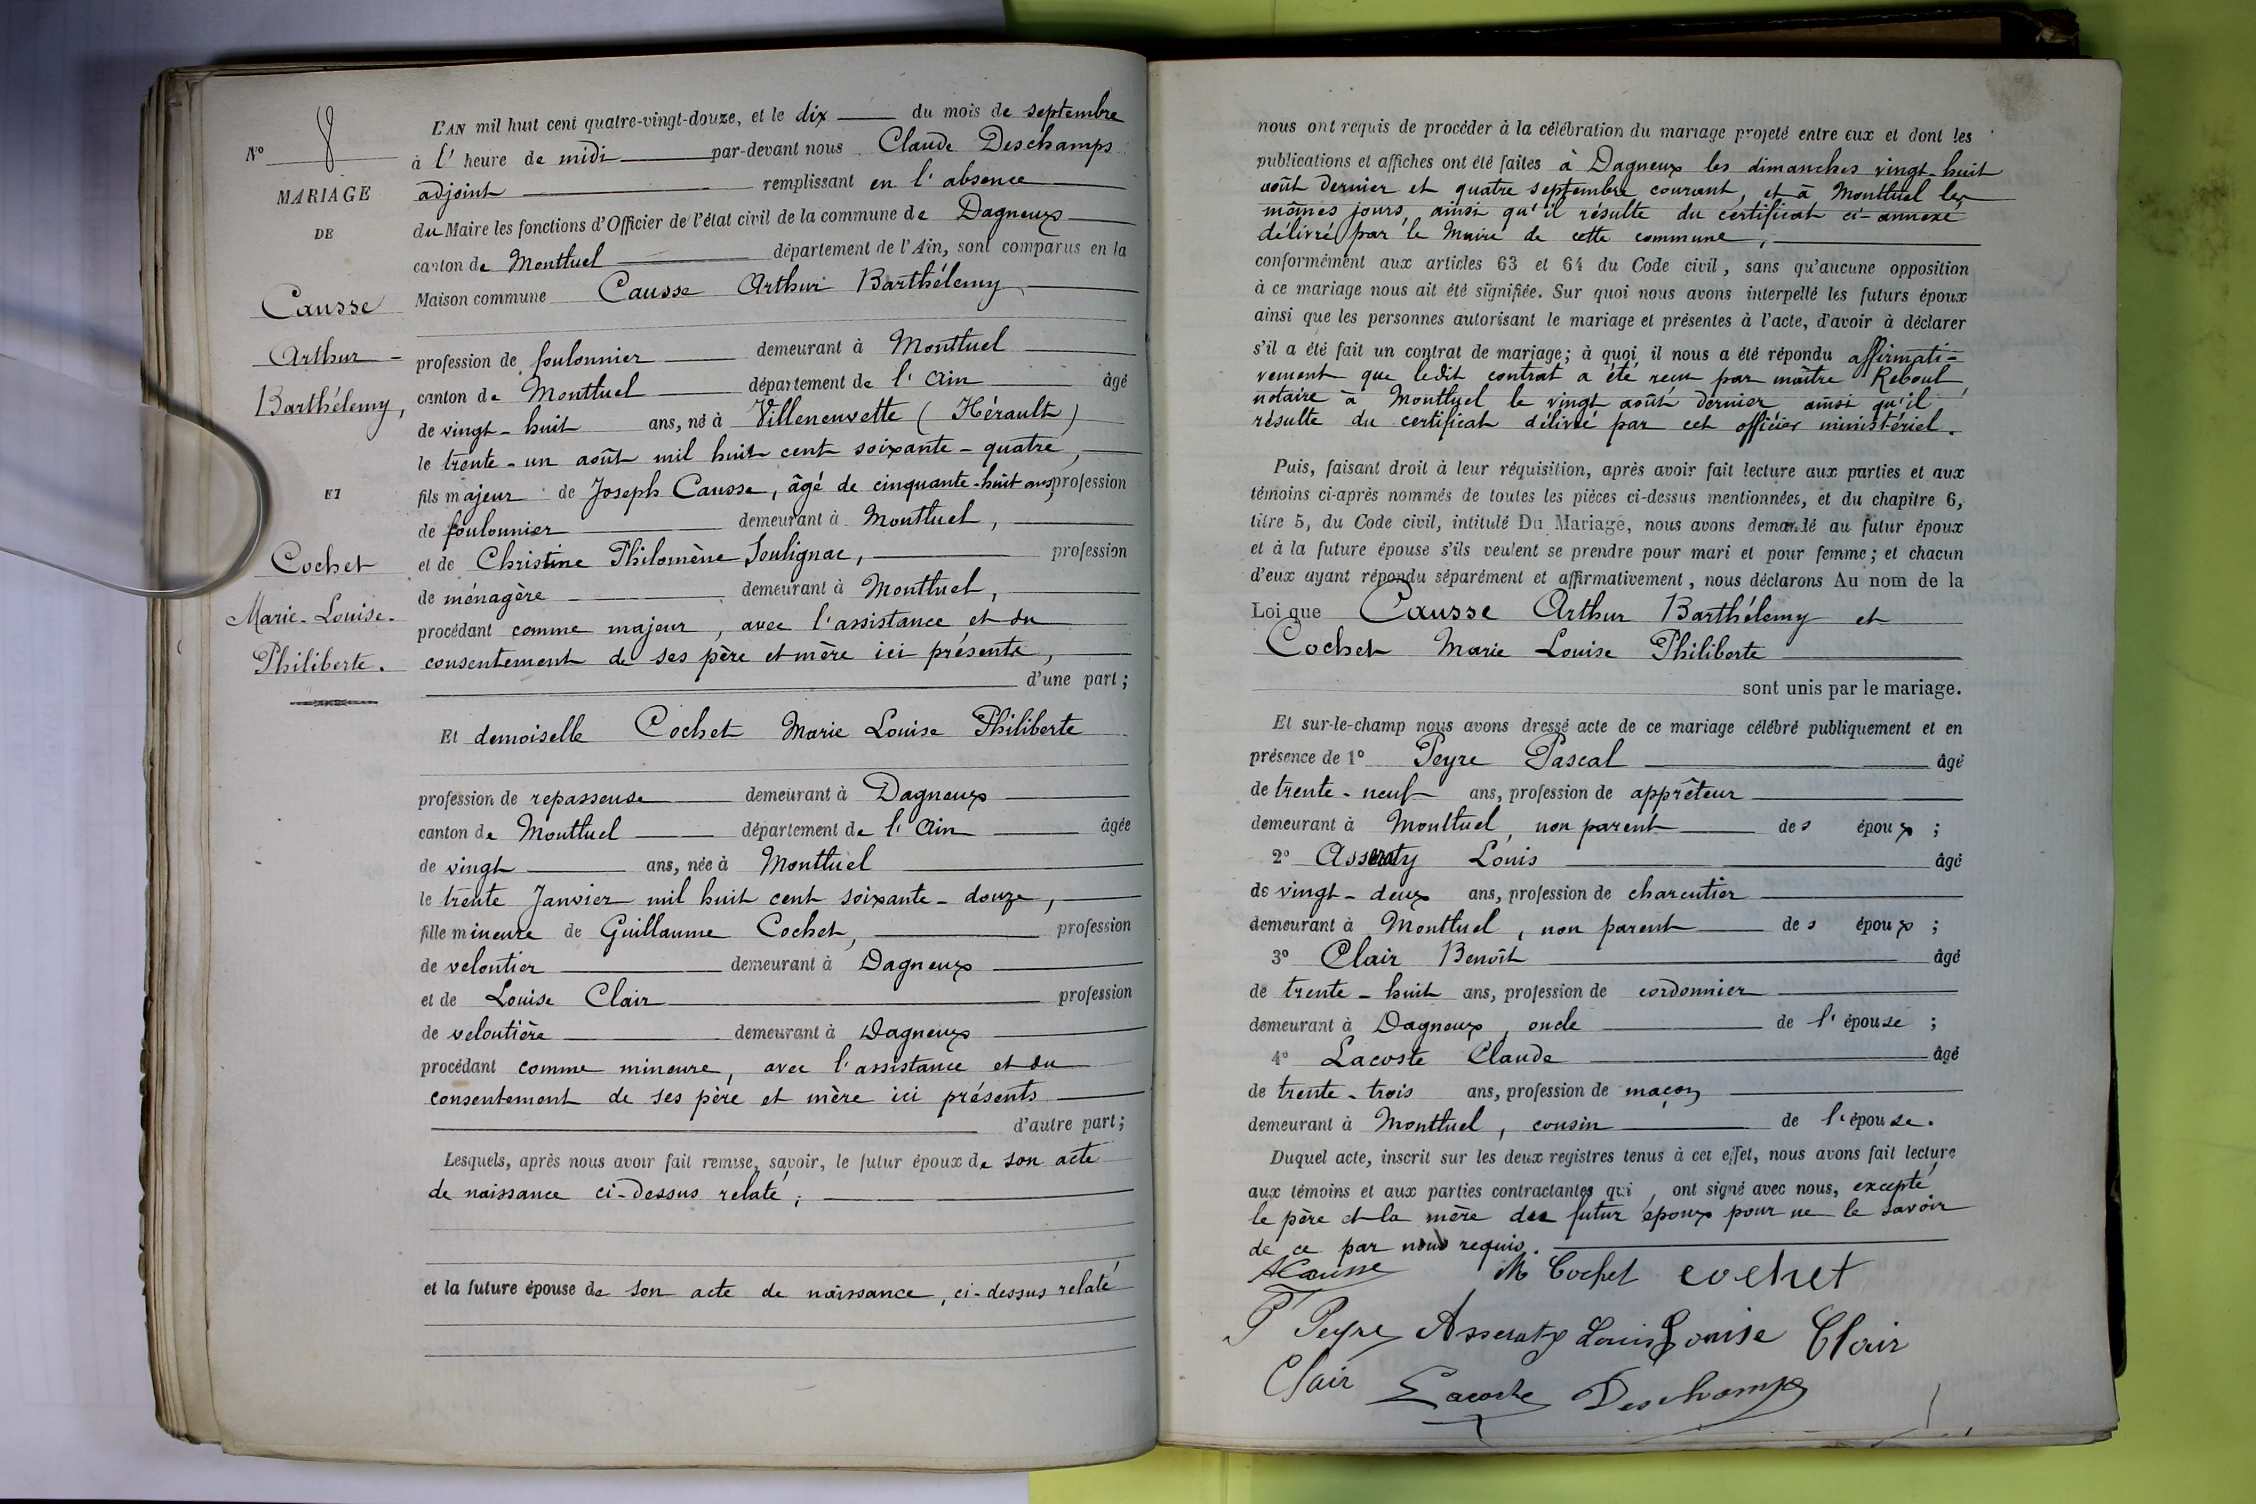 N° 8
MARIAGE
DE
Causse
Arthur
Barthélemy,
ET
Cochet
Marie-Louise-
Philiberte.
L'AN mil huit cent quatre-vingt-douze, et le dix du mois de septembre
à l'heure de midi par-devant nous Claude Deschamps
adjoint remplissant en l'absence
du Maire les fonctions d'Officier de l'état civil de la commune de Dagneux
canton de Montluel département de l'Ain, sont comparus en la
Maison commune Causse Arthur Barthélemy
profession de foulonnier demeurant à Montluel
canton de Montluel département de l'Ain âgé
de vingt-huit ans, né à Villeneuvette (Hérault)
le trente-un août mil huit cent soixante-quatre,
fils majeur de Joseph Causse, âgé de cinquante-huit ans, profession
de foulonnier demeurant à Montluel,
et de Christine Philomène Soulignac, profession
de ménagère demeurant à Montluel,
procédant comme majeur, avec l'assistance et du
consentement de ses père et mère ici présents,
d'une part;
Et demoiselle Cochet Marie Louise Philiberte
profession de repasseuse demeurant à Dagneux
canton de Montluel département de l'Ain âgée
de vingt ans, née à Montluel
le trente Janvier mil huit cent soixante-douze,
fille mineure de Guillaume Cochet, profession
de veloutier demeurant à Dagneux
et de Louise Clair profession
de veloutière demeurant à Dagneux
procédant comme mineure, avec l'assistance et du
consentement de ses père et mère ici présents
d'autre part;
Lesquels, après nous avoir fait remise, savoir, le futur époux de son acte
de naissance ci-dessus relaté;
et la future épouse de son acte de naissance, ci-dessus relaté
nous ont requis de procéder à la célébration du mariage projeté entre eux et dont les
publications et affiches ont été faites à Dagneux les dimanches vingt-huit
août dernier et quatre septembre courant, et à Montluel les
mêmes jours, ainsi qu'il résulte du certificat ci-annexé
délivré par le Maire de cette commune,
conformément aux articles 63 et 64 du Code civil, sans qu'aucune opposition
à ce mariage nous ait été signifiée. Sur quoi nous avons interpellé les futurs époux
ainsi que les personnes autorisant le mariage et présentes à l'acte, d'avoir à déclarer
s'il a été fait un contrat de mariage; à quoi il nous a été répondu affirmati-
vement que ledit contrat a été reçu par maître Reboul,
notaire à Montluel le vingt août dernier ainsi qu'il
résulte du certificat délivré par cet officier ministériel.
Puis, faisant droit à leur réquisition, après avoir fait lecture aux parties et aux
témoins ci-après nommés de toutes les pièces ci-dessus mentionnées, et du chapitre 6,
titre 5, du Code civil, intitulé Du Mariage, nous avons demandé au futur époux
et à la future épouse s'ils veulent se prendre pour mari et pour femme; et chacun
d'eux ayant répondu séparément et affirmativement, nous déclarons Au nom de la
Loi que Causse Arthur Barthélemy et
Cochet Marie Louise Philiberte
sont unis par le mariage.
Et sur-le-champ nous avons dressé acte de ce mariage célébré publiquement et en
présence de 1° Peyre Pascal âgé
de trente-neuf ans, profession de apprêteur
demeurant à Montluel, non parent des époux;
2° Asseraty Louis âgé
de vingt-deux ans, profession de charcutier
demeurant à Montluel, non parent des époux;
3° Clair Benoît âgé
de trente-huit ans, profession de cordonnier
demeurant à Dagneux, oncle de l'épouse;
4° Lacoste Claude âgé
de trente-trois ans, profession de maçon
demeurant à Montluel, cousin de l'épouse.
Duquel acte, inscrit sur les deux registres tenus à cet effet, nous avons fait lecture
aux témoins et aux parties contractantes qui, ont signé avec nous, excepté
le père et la mère du futur époux pour ne le savoir
de ce par nous requis.
A Causse M Cochet cochet
P Peyre Asseraty Louis Louise Clair
Clair Lacoste Deschamps